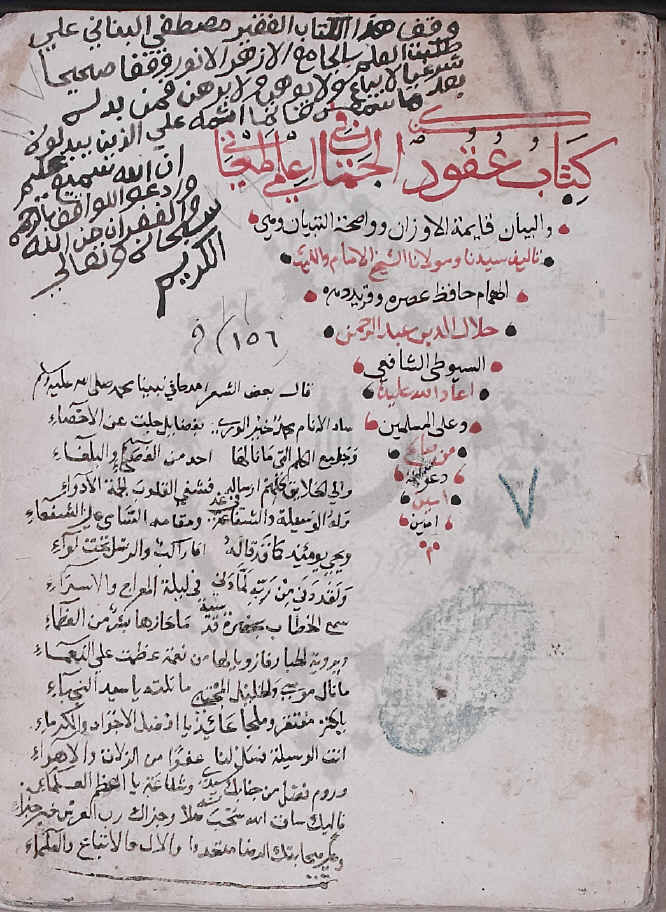 وقف هذا الكتاب الفقير مصطفي البناني علي
طلبت العلم بالجامع الازهر الانور وقفا صحيحا
شرعيا لا يباع ولا يوهب ولا يرهن فمن بدله
بعد ما سمعه فانما اثمه علي الذين يبدلونه
ان الله سميع عليم
الفقير
سبحانه وتعالي
الكريم
كتاب عقود الجمان في علمي المعاني
والبيان قايمة الاوزان وواضحة التبيان وهي
تاليف سيدنا ومولانا الشيخ الامام والليث
الهمام حافظ عصره وفريد دهره
جلال الدين عبد الرحمن
السيوطي الشافعي
اعاد الله علينا
وعلى المسلمين
من
دعواته
امين
امين
١٥٦
٧
قال بعض الشعرا مدحا في نبينا محمد صلى الله عليه وسلم
ساد الانام محمد خير الورى بفضايل جلت عن الاحصاء
وجوامع الكلم التي ما نالها احد من الفصحاء والبلغاء
والى الخلايق كلهم ارساله فشفى القلوب لجمة الادواء
وله الوسيلة والشفاعة في غد ومقامه السامي على الشفعاء
ويجي يومئذ كما قد قاله انا راكب والرسل تحت لواء
ولقد دنى من ربه لما دنى في ليلة المعراج والاسراء
سمع الخطاب بحضرة قدسية ما حازها بشر من العظماء
وبروية الجبار فاز ويا لها من نعمة عظمت على النعماء
ما نال موسى والخليل المجتبى ما نلته يا سيد النجباء
يا كنز مفتقر وملجا عائذ يا افضل الاجواد والكرماء
انت الوسيلة فسل لنا عفوا من الزلات والاهواء
وروم فضل من جنابك سيدي وشفاعة يا اعظم
فاليك ساق الله سحب صلاته وجزاك رب العرش خير جزاء
وعلى صحابتك الرضا والآل والاتباع والعلماء